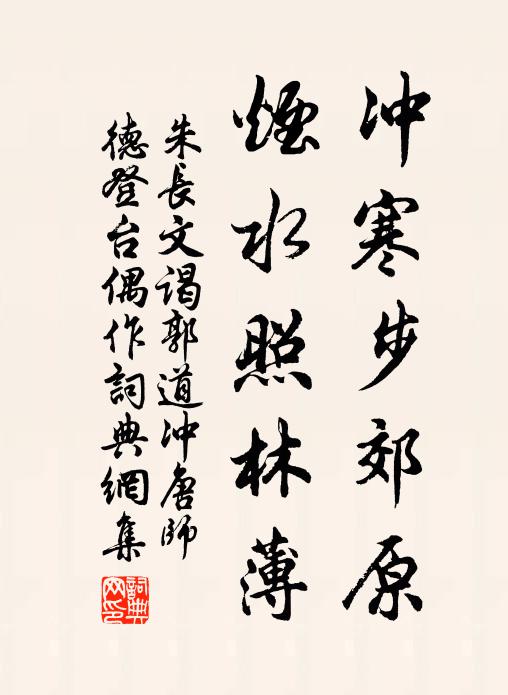 冲寒步郊原
煙水照林薄
朱長文谒郭道冲唐師
德登台偶作詞典網集
詞典网印